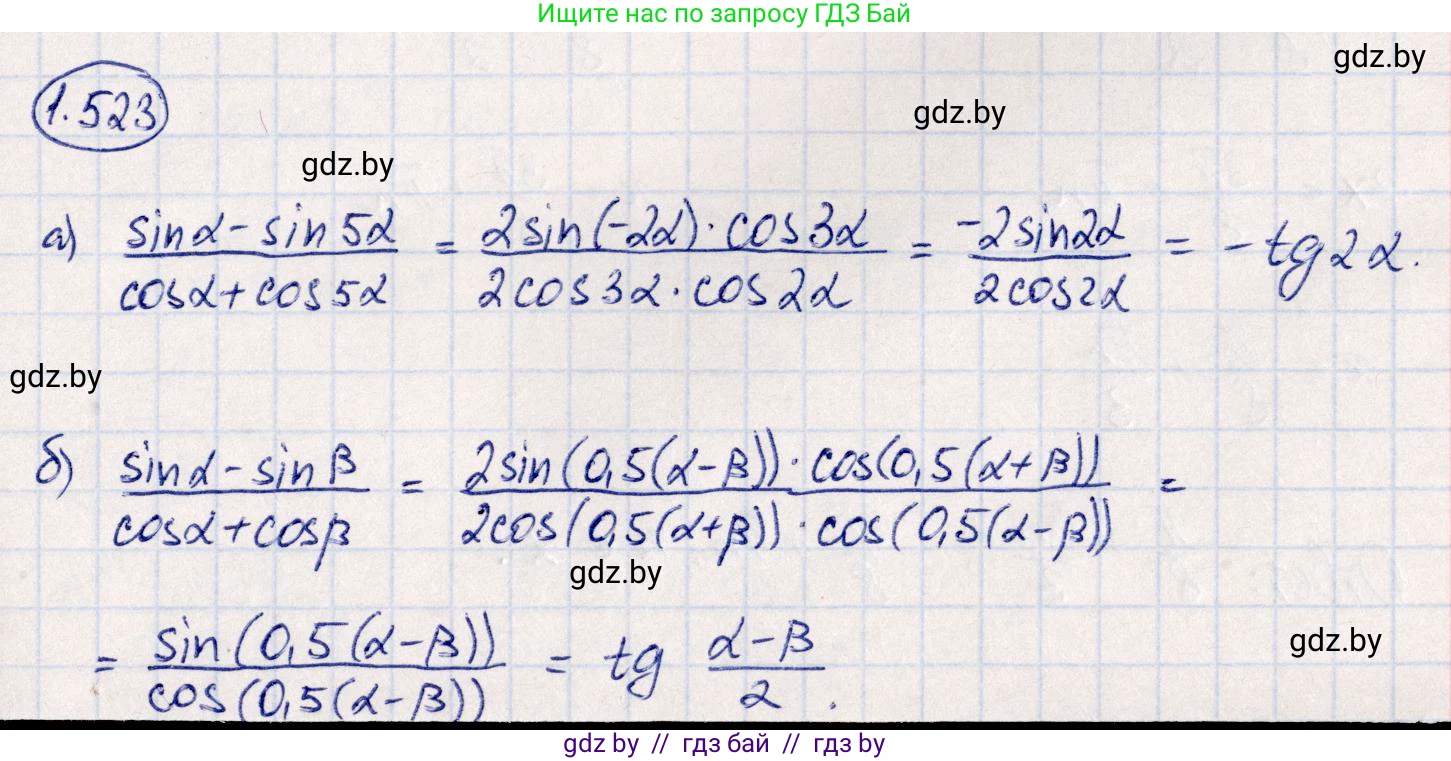 Ищите нас по запросу ГДЗ Бай
gdz.by
1.523
gdz.by
gdz.by
а) (sinα - sin 5α)/(cosα + cos 5α) = (2sin(-2α)·cos3α)/(2cos3α·cos2α) = (-2sin2α)/(2cos2α) = -tg2α.
gdz.by
б) (sinα - sinβ)/(cosα + cosβ) = (2sin(0,5(α-β))·cos(0,5(α+β)))/(2cos(0,5(α+β))·cos(0,5(α-β))) =
gdz.by
= (sin(0,5(α-β)))/(cos(0,5(α-β))) = tg (α-β)/2.
gdz.by
gdz by // гдз бай // гдз by